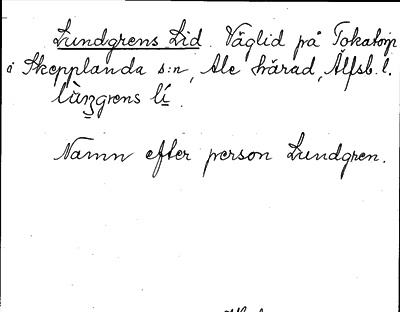 Lundgrens Lid. Väglid på Tokatorp
i Skepplanda s:n, Ale härad, Älfsb. l.
lùngrens lí.
Namn efter person Lundgren.